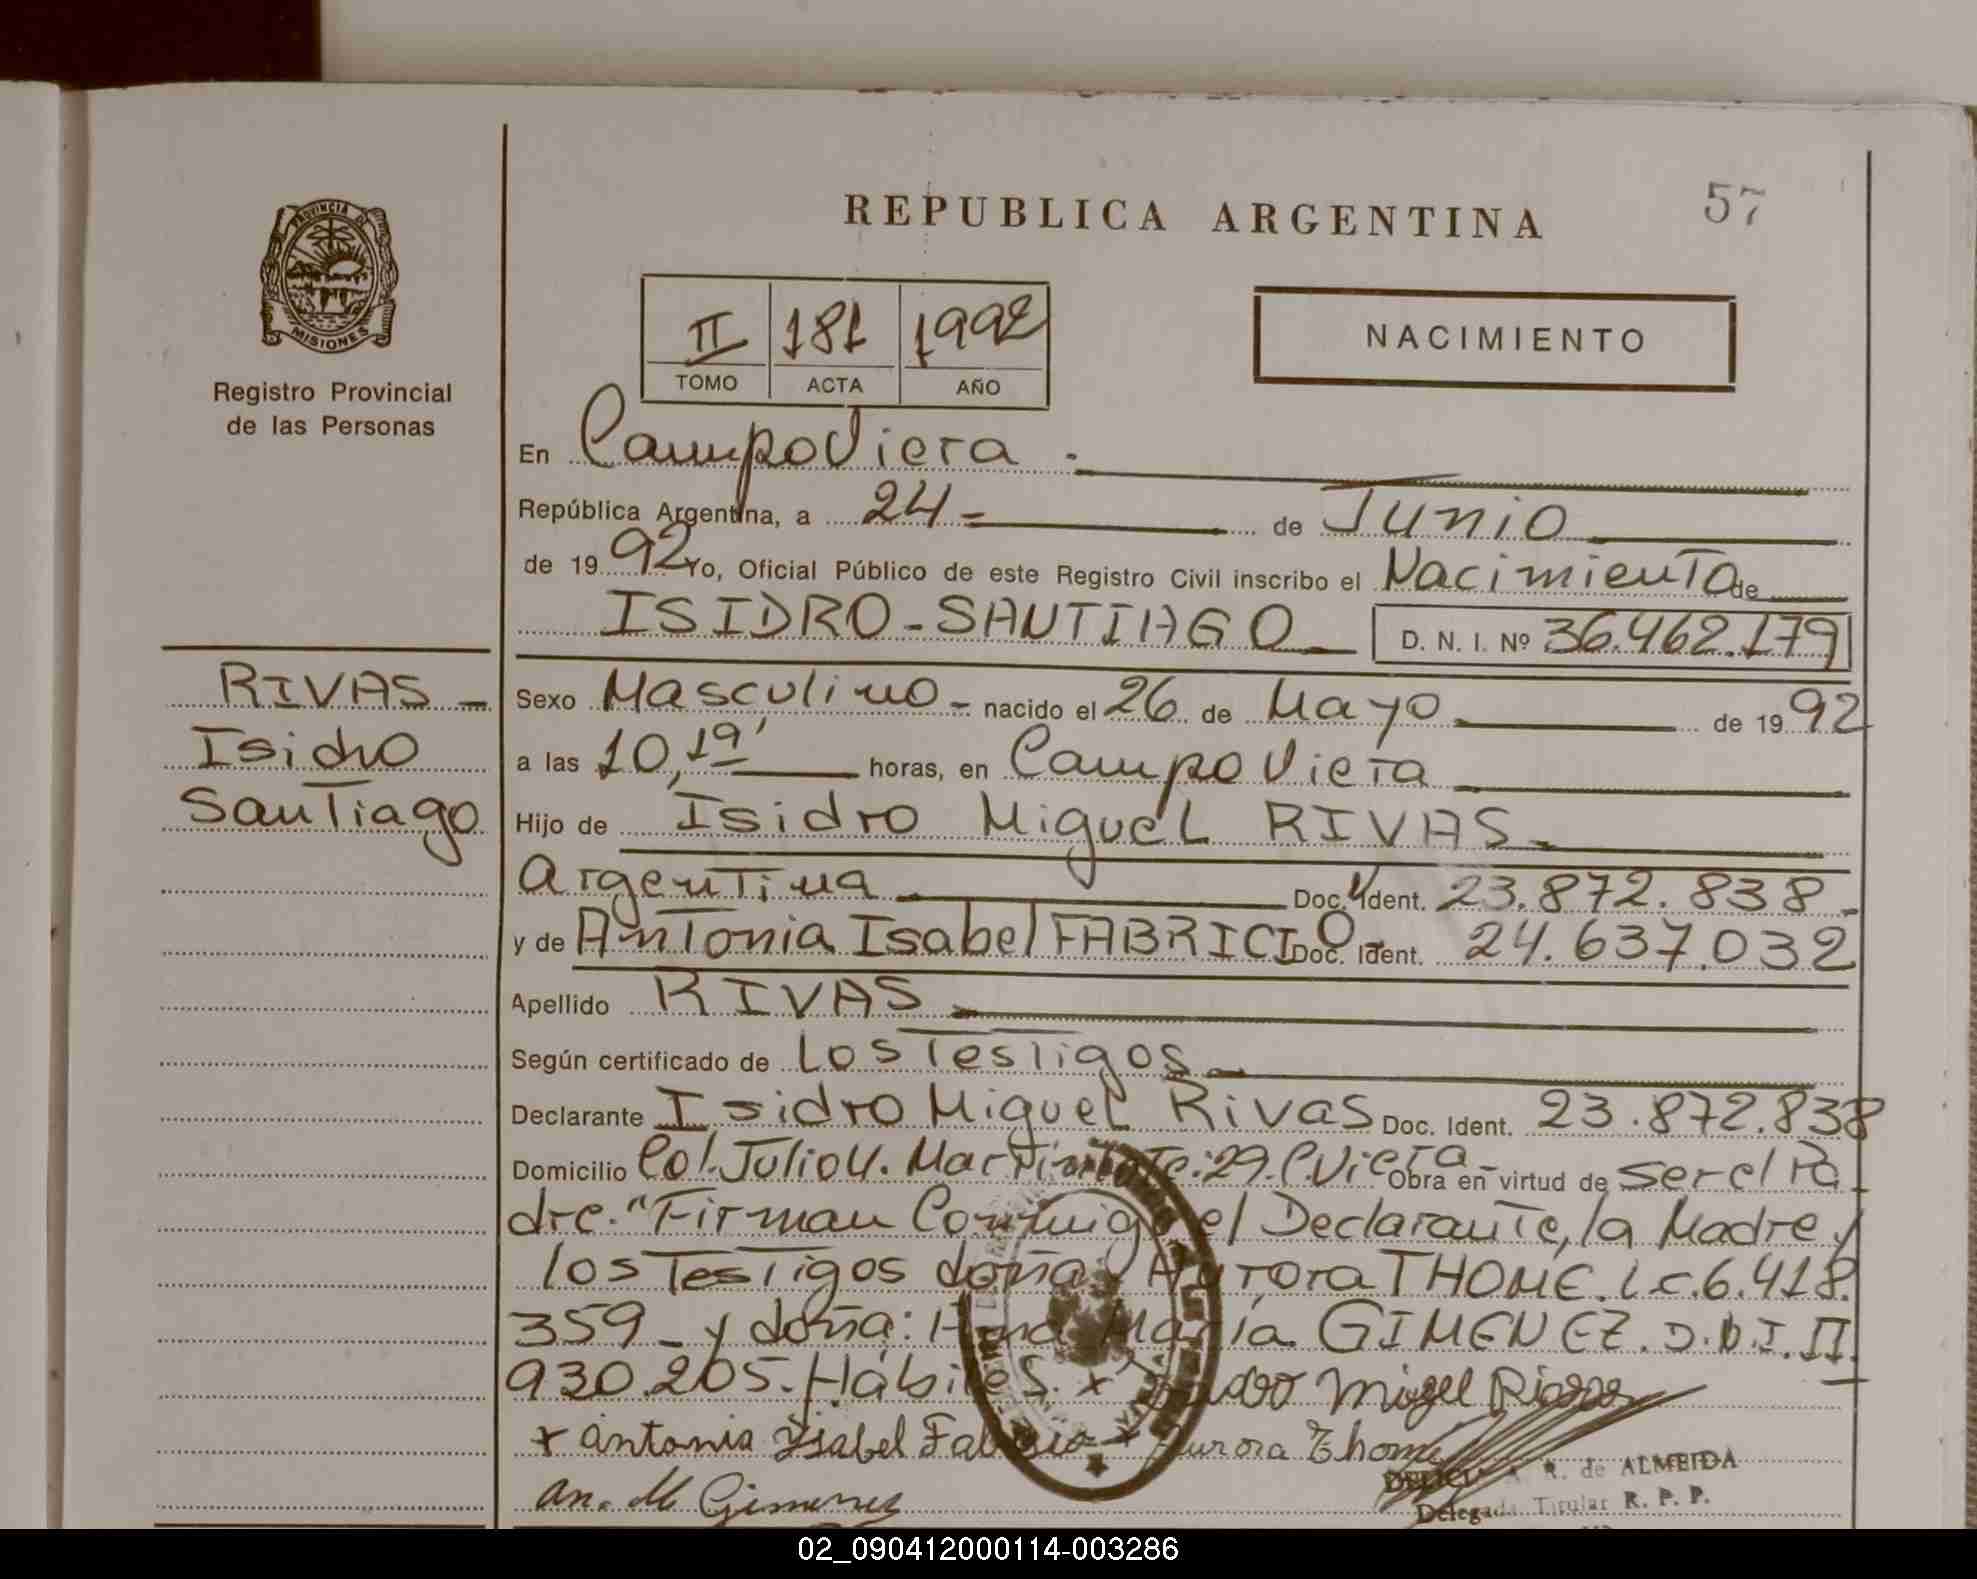 57
REPUBLICA ARGENTINA
PROVINCIA DE
MISIONES
Registro Provincial
de las Personas
II 181 1992
TOMO ACTA AÑO
NACIMIENTO
En CampoViera.
República Argentina, a 24 - de Junio
de 1992 Yo, Oficial Público de este Registro Civil inscribo el Nacimiento de
ISIDRO - SANTIAGO D. N. I. Nº 36.462.179
RIVAS -
Isidro
Santiago
Sexo Masculino - nacido el 26 de Mayo de 1992
a las 10,19' horas, en Campo Viera
Hijo de Isidro Miguel RIVAS
Argentina Doc. Ident. 23.872.838 -
y de Antonia Isabel FABRICIO - Doc. Ident. 24.637.032
Apellido RIVAS
Según certificado de Los Testigos
Declarante Isidro Miguel Rivas Doc. Ident. 23.872.838
Domicilio Col. Julio U. Martin Lote: 29. C. Viera - Obra en virtud de ser el Pa
dre. "Firman Conmigo el Declarante, la Madre y
los Testigos doña: Aurora THOME. L.C. 6.418.
359 - y doña: Ana María GIMENEZ. D.N.I. II.
930.205. Hábiles. x Isidro Migel Rivas
x antonia Ysabel Fabricio x Aurora Thomé
an. M Gimenez
R. de ALMEIDA
Delegada Titular R. P. P.
02_090412000114-003286